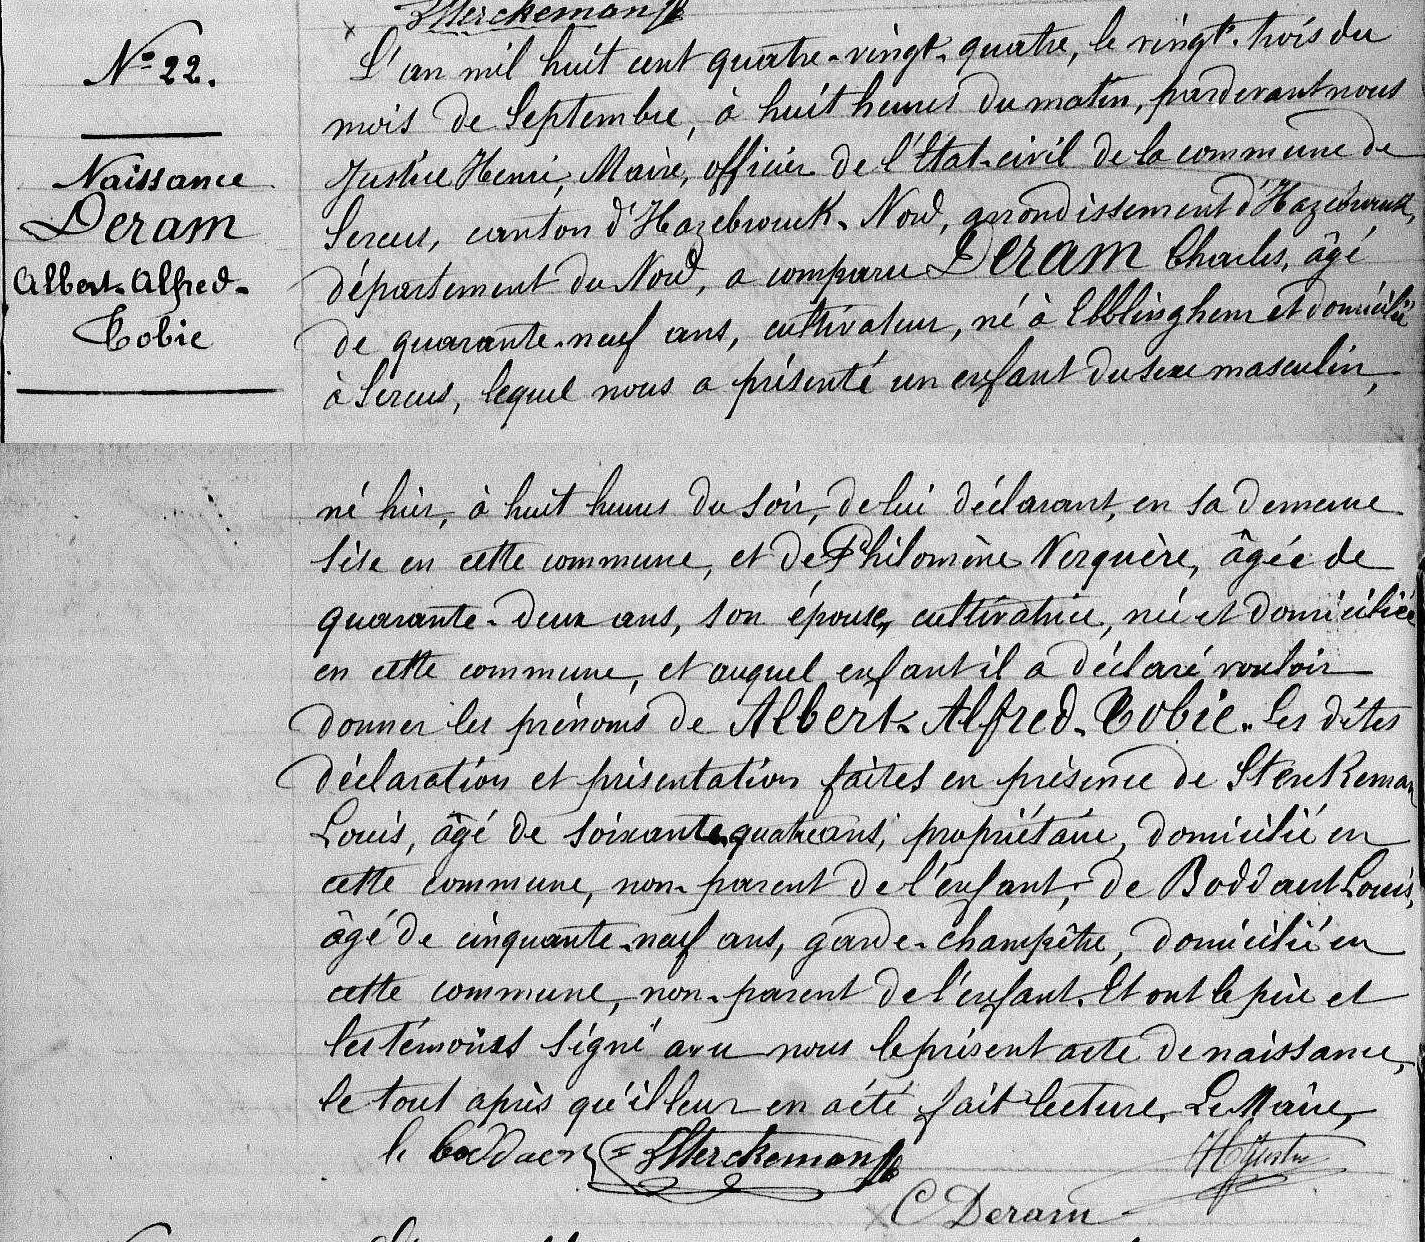 Sterckeman
Nº 22.
Naissance
Deram
Albert-Alfred-
Tobie
L'an mil huit cent quatre-vingt-quatre, le vingt-trois du
mois de Septembre, à huit heures du matin, pardevant nous
Justice Henri, Maire, officier de l'Etat-civil de la commune de
Sercus, canton d'Hazebrouck-Nord, arrondissement d'Hazebrouck,
département du Nord, a comparu Deram Charles, âgé
de quarante-neuf ans, cultivateur, né à Ebblinghem et domicilié
à Sercus, lequel nous a présenté un enfant du sexe masculin,
né hier, à huit heures du soir, de lui déclarant, en sa demeure
sise en cette commune, et de Philomène Verquère, âgée de
quarante-deux ans, son épouse, cultivatrice, née et domiciliée
en cette commune, et auquel enfant il a déclaré vouloir
donner les prénoms de Albert-Alfred-Tobie. Les dites
déclaration et présentation faites en présence de Sterckeman
Louis, âgé de soixante quatre ans, propriétaire, domicilié en
cette commune, non-parent de l'enfant; de Boddaert Louis,
âgé de cinquante-neuf ans, garde-champêtre, domicilié en
cette commune, non-parent de l'enfant. Et ont le père et
les témoins signé avec nous le présent acte de naissance,
le tout après qu'il leur en a été fait lecture. Le Maire,
l Boddaert Sterckeman
C Deram